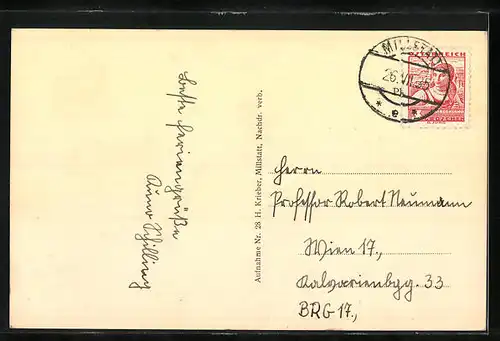 Beste Feriengrüße
Schilling
Aufnahme Nr. 28 H. Krieber, Millstatt, Nachdr. verb.
MILLSTATT
26.VII.35
* e *
ÖSTERREICH
Herrn
Professor Robert Neumann
Wien 17.,
Kalvarienbg. 33
BRG 17.,